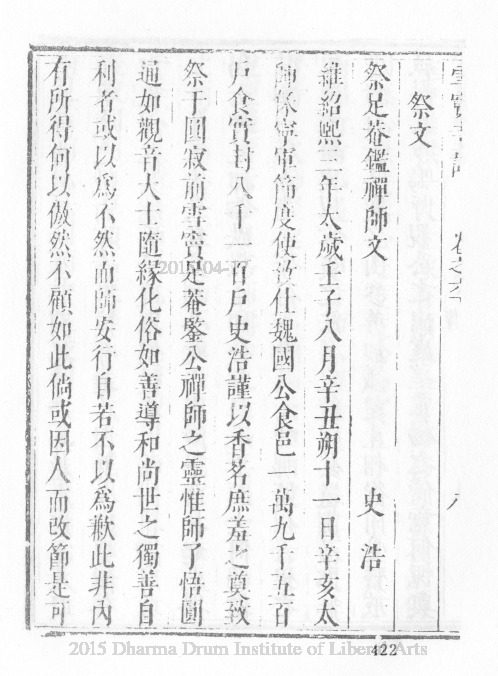 雪竇寺誌　卷之六　八
祭文
祭足菴鑑禪師文　史浩
維紹熙三年太歲壬子八月辛丑朔十一日辛亥太
師保寧軍節度使致仕魏國公食邑一萬九千五百
戶食實封八千一百戶史浩謹以香茗庶羞之奠致
祭于圓寂前雪竇足菴鑒公禪師之靈惟師了悟圓
通如觀音大士隨緣化俗如善導和尚世之獨善自
利者或以爲不然而師安行自若不以爲歉此非內
有所得何以傲然不顧如此倘或因人而改節是可
2015-04-17
422
2015 Dharma Drum Institute of Liberal Arts